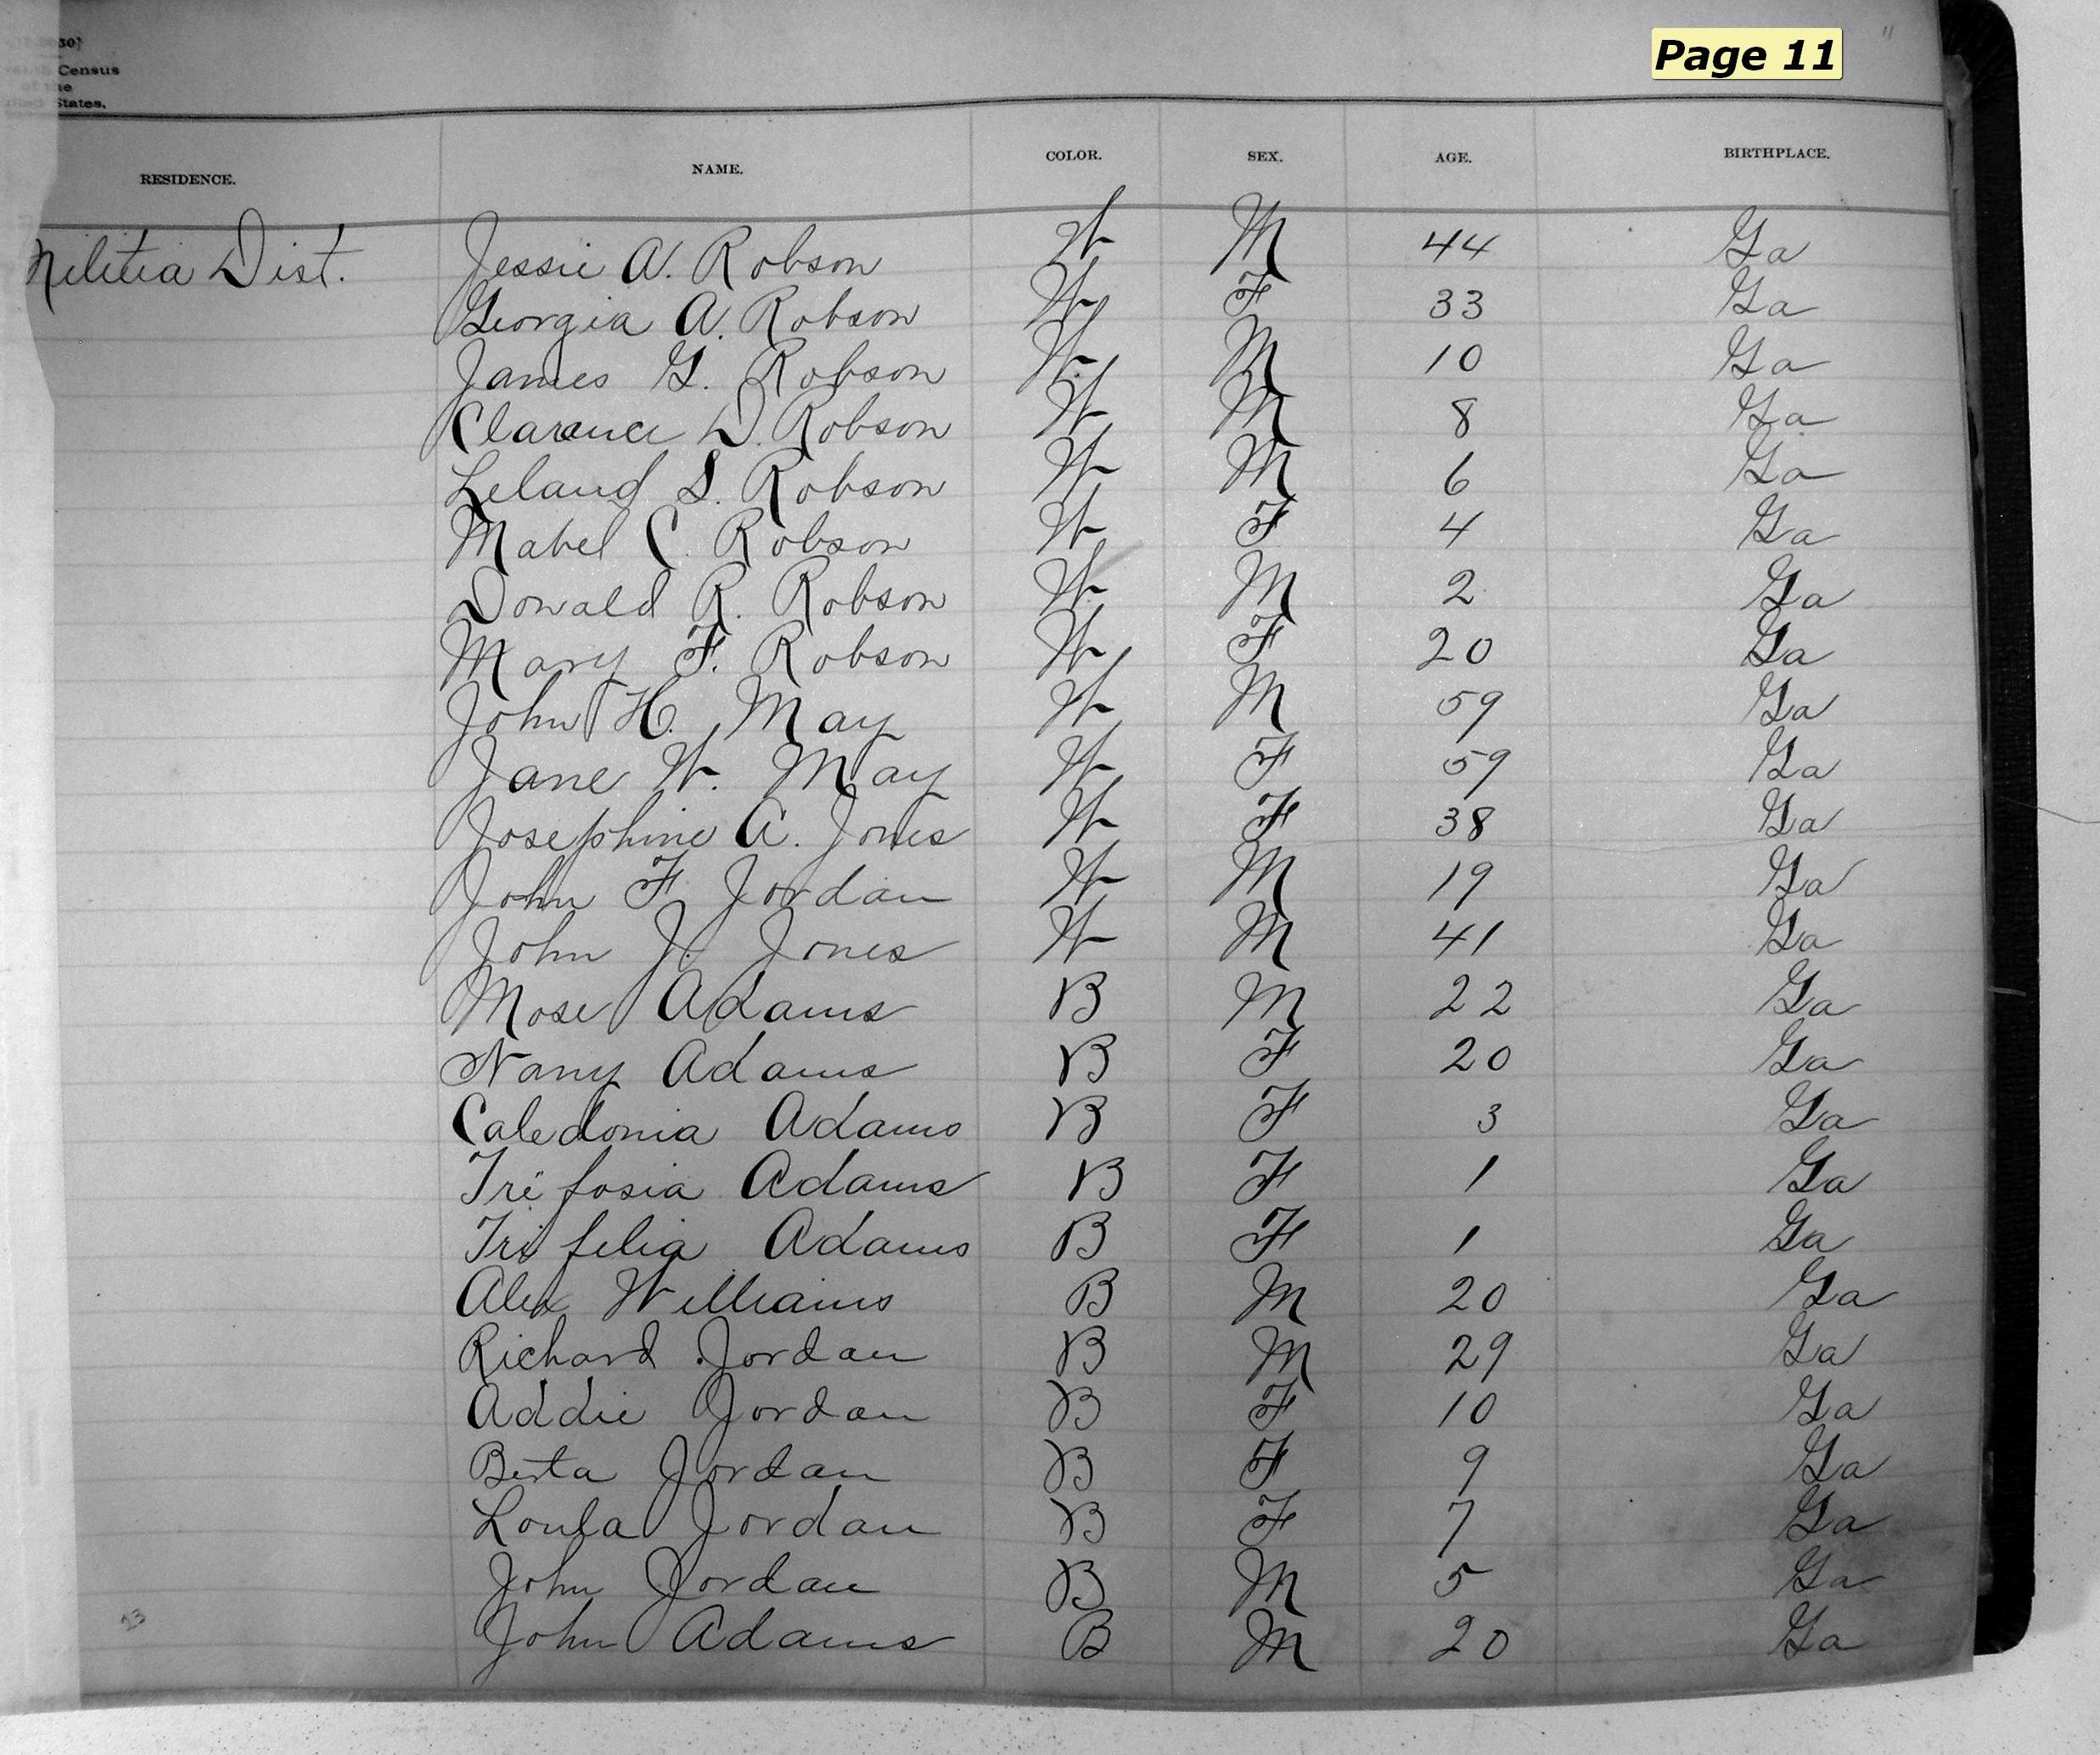 Page 11
11
30]
Census
of the
United States.
RESIDENCE. NAME. COLOR. SEX. AGE. BIRTHPLACE.
Militia Dist. Jessie A. Robson W M 44 Ga
Georgia A. Robson W F 33 Ga
James G. Robson W M 10 Ga
Clarence D. Robson W M 8 Ga
Leland S. Robson W M 6 Ga
Mabel C. Robson W F 4 Ga
Donald R. Robson W M 2 Ga
Mary F. Robson W F 20 Ga
John H. May W M 59 Ga
Jane W. May W F 59 Ga
Josephine A. Jones W F 38 Ga
John F. Jordan W M 19 Ga
John J. Jones W M 41 Ga
Mose Adams B M 22 Ga
Nany Adams B F 20 Ga
Caledonia Adams B F 3 Ga
Trifosia Adams B F 1 Ga
Trifelia Adams B F 1 Ga
Alex Williams B M 20 Ga
Richard Jordan B M 29 Ga
Addie Jordan B F 10 Ga
Berta Jordan B F 9 Ga
Loula Jordan B F 7 Ga
John Jordan B M 5 Ga
John Adams B M 20 Ga
23